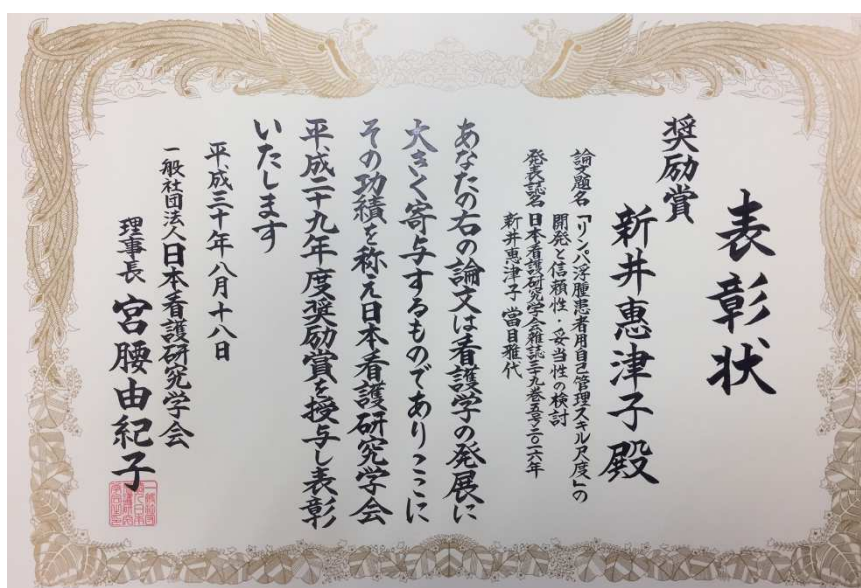 表彰状
奨励賞
新井恵津子殿
論文題名 「リンパ浮腫患者用自己管理スキル尺度」の
開発と信頼性・妥当性の検討
発表誌名 日本看護研究学会雑誌三九巻五号二〇一六年
新井恵津子 當目雅代
あなたの右の論文は看護学の発展に
大きく寄与するものでありここに
その功績を称え日本看護研究学会
平成二十九年度奨励賞を授与し表彰
いたします
平成三十年八月十八日
一般社団法人日本看護研究学会
理事長 宮腰由紀子